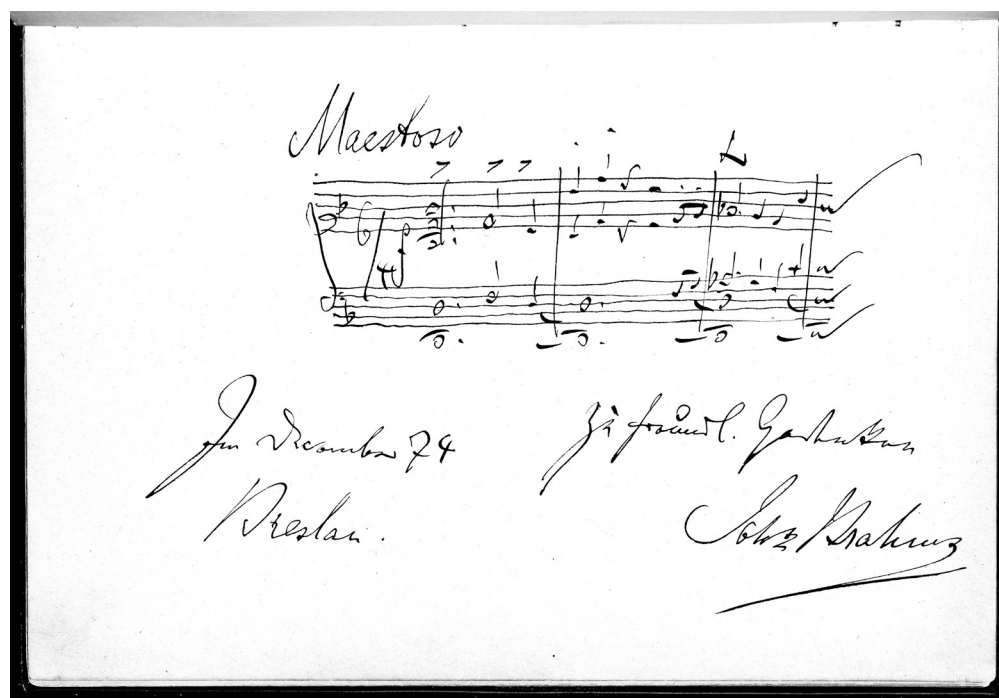 Maestoso
6/4 f
Im December 74
Breslau.
Zu freundl. Gedenken
Johs Brahms